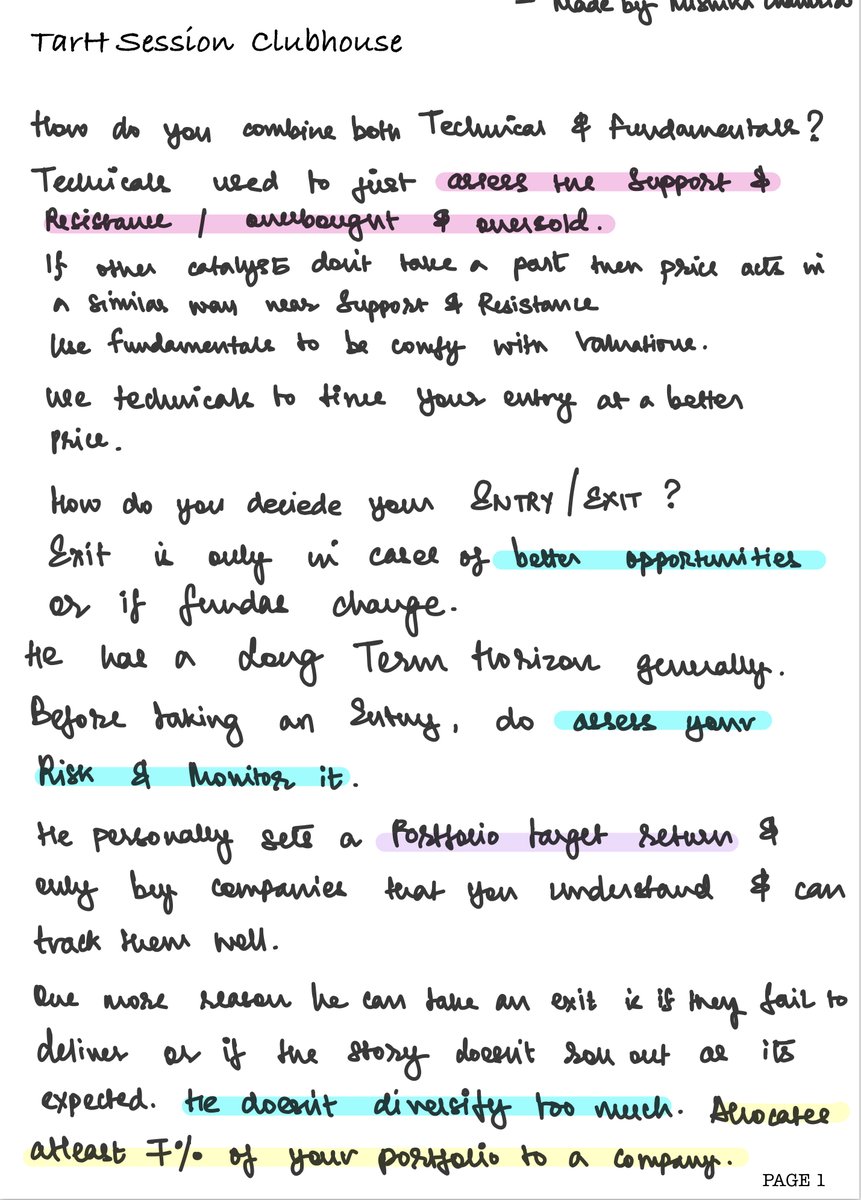 - Made by
TarH Session Clubhouse
How do you combine both Technical & fundamentals?
Technicals used to just assess the Support &
Resistance / overbought & oversold.
If other catalysts don't take a part then price acts in
a similar way near Support & Resistance
Use fundamentals to be comfy with valuations.
use technicals to time your entry at a better
price.
How do you deciede your ENTRY/EXIT?
Exit is only in cases of better opportunities
or if fundas change.
He has a Long Term Horizon generally.
Before taking an Entry, do assess your
Risk & Monitor it.
He personally sets a Portfolio target return &
only buy companies that you understand & can
track them well.
One more reason he can take an exit is if they fail to
deliver or if the story doesn't roll out as its
expected. He doesn't diversify too much. Allocates
atleast 7% of your portfolio to a company.
PAGE 1